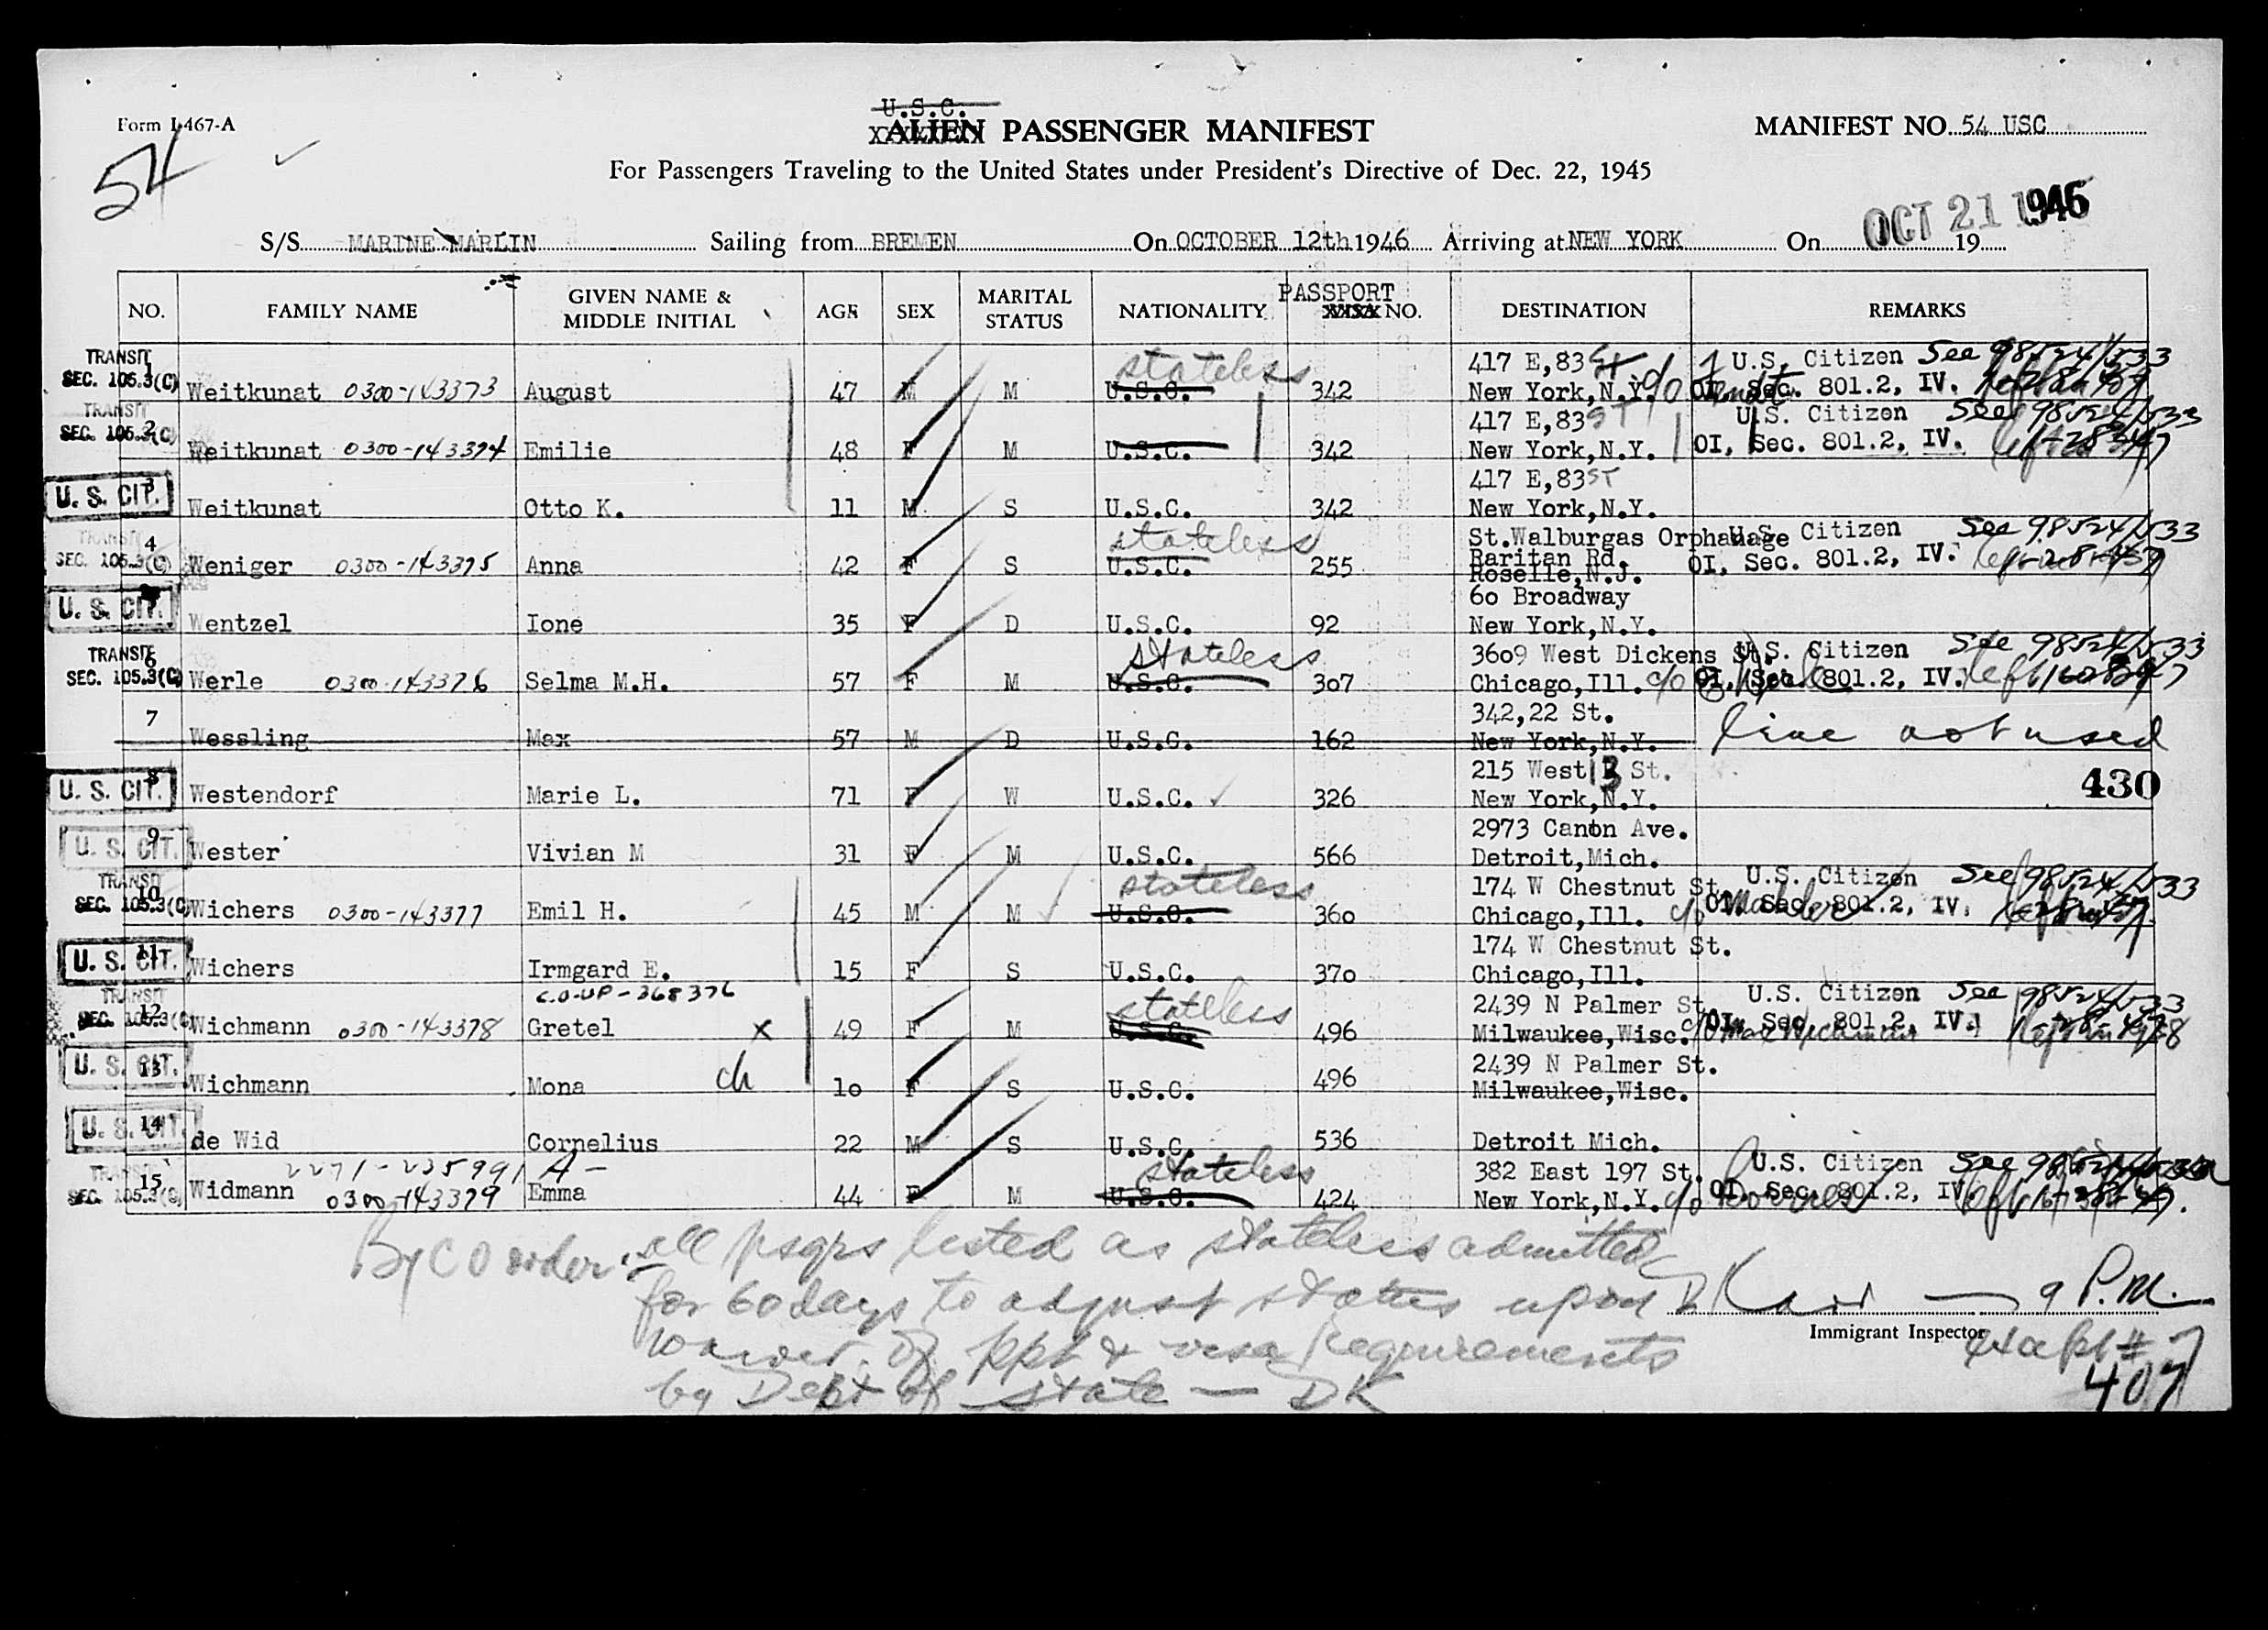 U.S.C.
Form I-467-A
ALIEN PASSENGER MANIFEST
MANIFEST NO. 54 USC
54
For Passengers Traveling to the United States under President's Directive of Dec. 22, 1945
OCT 21 1946
S/S MARINE MARLIN Sailing from BREMEN On OCTOBER 12th 1946 Arriving at NEW YORK On 19
NO. FAMILY NAME GIVEN NAME & MIDDLE INITIAL AGE SEX MARITAL STATUS NATIONALITY PASSPORT NO. DESTINATION REMARKS
TRANSIT 1 stateless 417 E,83 St c/o U.S. Citizen See 98524/533
SEC. 105.3(C) Weitkunat 0300-143373 August 47 M M U.S.C. 342 New York,N.Y. OI, Sec. 801.2, IV. left
TRANSIT 2 417 E,83 ST U.S. Citizen See 98524/533
SEC. 105.3(C) Weitkunat 0300-143374 Emilie 48 F M U.S.C. 342 New York,N.Y. OI, Sec. 801.2, IV. left
3 417 E,83 ST
U. S. CIT. Weitkunat Otto K. 11 M S U.S.C. 342 New York,N.Y.
TRANSIT 4 stateless St.Walburgas Orphanage U.S. Citizen See 98524/533
SEC. 105.3(C) Weniger 0300-143375 Anna 42 F S U.S.C. 255 Raritan Rd. OI, Sec. 801.2, IV. left
Roselle,N.J.
60 Broadway
U. S. CIT. Wentzel Ione 35 F D U.S.C. 92 New York,N.Y.
TRANSIT 6 stateless 3609 West Dickens St. U.S. Citizen See 98524/533
SEC. 105.3(C) Werle 0300-143376 Selma M.H. 57 F M U.S.C. 307 Chicago,Ill. c/o OI, Sec. 801.2, IV. left
7 342,22 St.
Wessling Max 57 M D U.S.C. 162 New York,N.Y. line not used
8 215 West 13 St. 430
U. S. CIT. Westendorf Marie L. 71 F W U.S.C. 326 New York,N.Y.
9 2973 Canton Ave.
U. S. CIT. Wester Vivian M 31 F M U.S.C. 566 Detroit,Mich.
TRANSIT 10 stateless 174 W Chestnut St. U.S. Citizen See 98524/533
SEC. 105.3(C) Wichers 0300-143377 Emil H. 45 M M U.S.C. 360 Chicago,Ill. c/o OI, Sec. 801.2, IV. left
11 174 W Chestnut St.
U. S. CIT. Wichers Irmgard E. 15 F S U.S.C. 370 Chicago,Ill.
C.O-UP-368376
TRANSIT 12 stateless 2439 N Palmer St. U.S. Citizen See 98524/533
SEC. 105.3(C) Wichmann 0300-143378 Gretel X 49 F M U.S.C. 496 Milwaukee,Wisc. c/o OI, Sec. 801.2, IV. left
13 2439 N Palmer St.
U. S. CIT. Wichmann Mona ch 10 F S U.S.C. 496 Milwaukee,Wisc.
14
U. S. CIT. de Wid Cornelius 22 M S U.S.C. 536 Detroit Mich.
2271-235991 A-
TRANSIT 15 stateless 382 East 197 St. U.S. Citizen See
SEC. 105.3(C) Widmann 0300-143379 Emma 44 F M U.S.C. 424 New York,N.Y. c/o OI, Sec. 801.2, IV. left
By C O order: all psgrs listed as stateless admitted
for 60 days to adjust status upon
9 P.M.
Immigrant Inspector
waiver of ppt & visa requirements
by Dept of State — DK
407